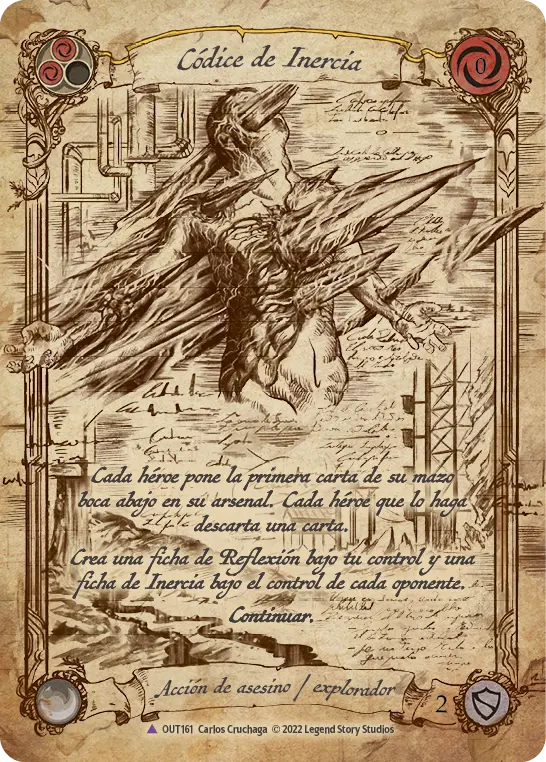 Códice de Inercia
0
Cada héroe pone la primera carta de su mazo
boca abajo en su arsenal. Cada héroe que lo haga
descarta una carta.
Crea una ficha de Reflexión bajo tu control y una
ficha de Inercia bajo el control de cada oponente.
Continuar.
Acción de asesino / explorador
2
OUT161 Carlos Cruchaga © 2022 Legend Story Studios